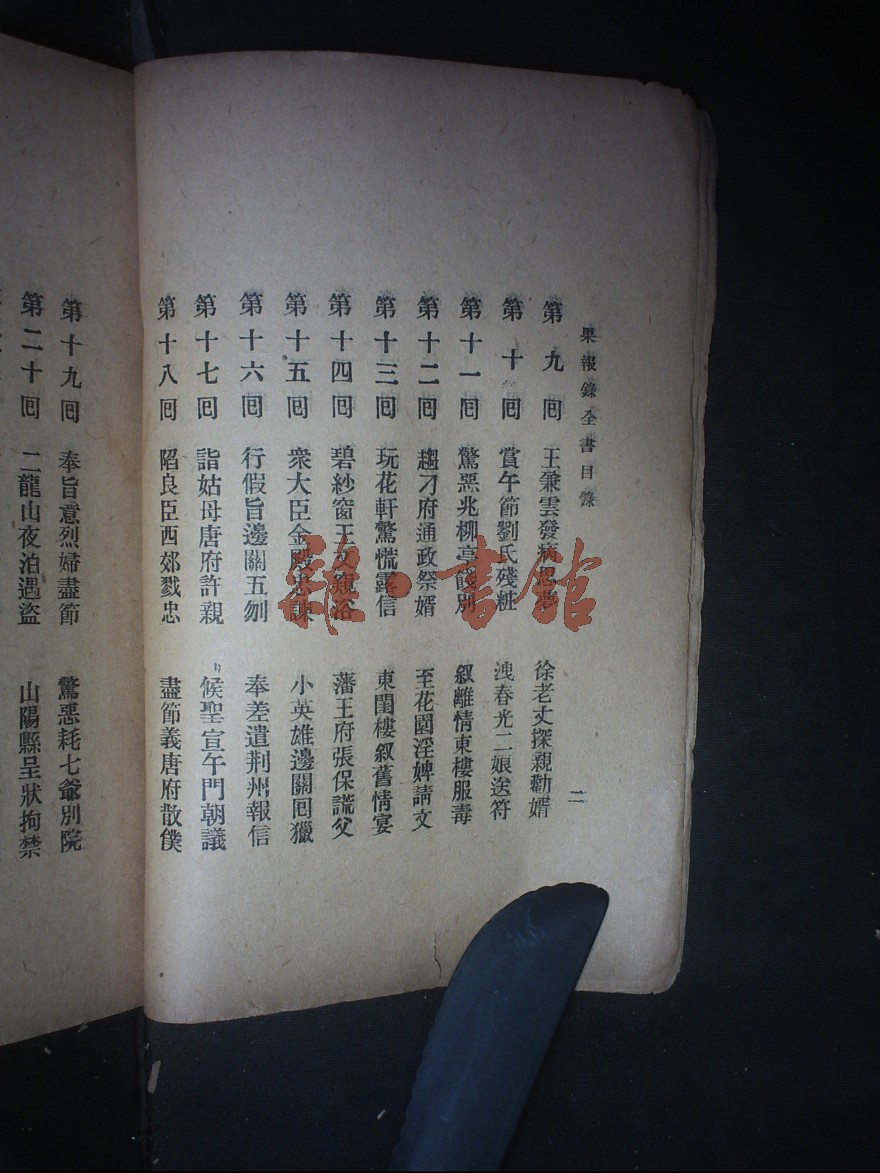 果報錄全書目錄
二
第九回 王兼雲發病思夢 徐老丈探親勸婿
第十回 賞午節劉氏殘粧 洩春光二娘送符
第十一回 驚惡兆柳亭餞別 叙離情東樓服毒
第十二回 趨刁府通政祭婿 至花園淫婢請文
第十三回 玩花軒驚慌露信 東閨樓叙舊情宴
第十四回 碧紗窗王文窺浴 藩王府張保謊父
第十五回 衆大臣金殿忠諫 小英雄邊關回獵
第十六回 行假旨邊關五刎 奉差遣荆州報信
第十七回 詣姑母唐府許親 候聖宣午門朝議
第十八回 陷良臣西郊戮忠 盡節義唐府散僕
第十九回 奉旨意烈婦盡節 驚惡耗七爺別院
第二十回 二龍山夜泊遇盜 山陽縣呈狀拘禁
雜·書館